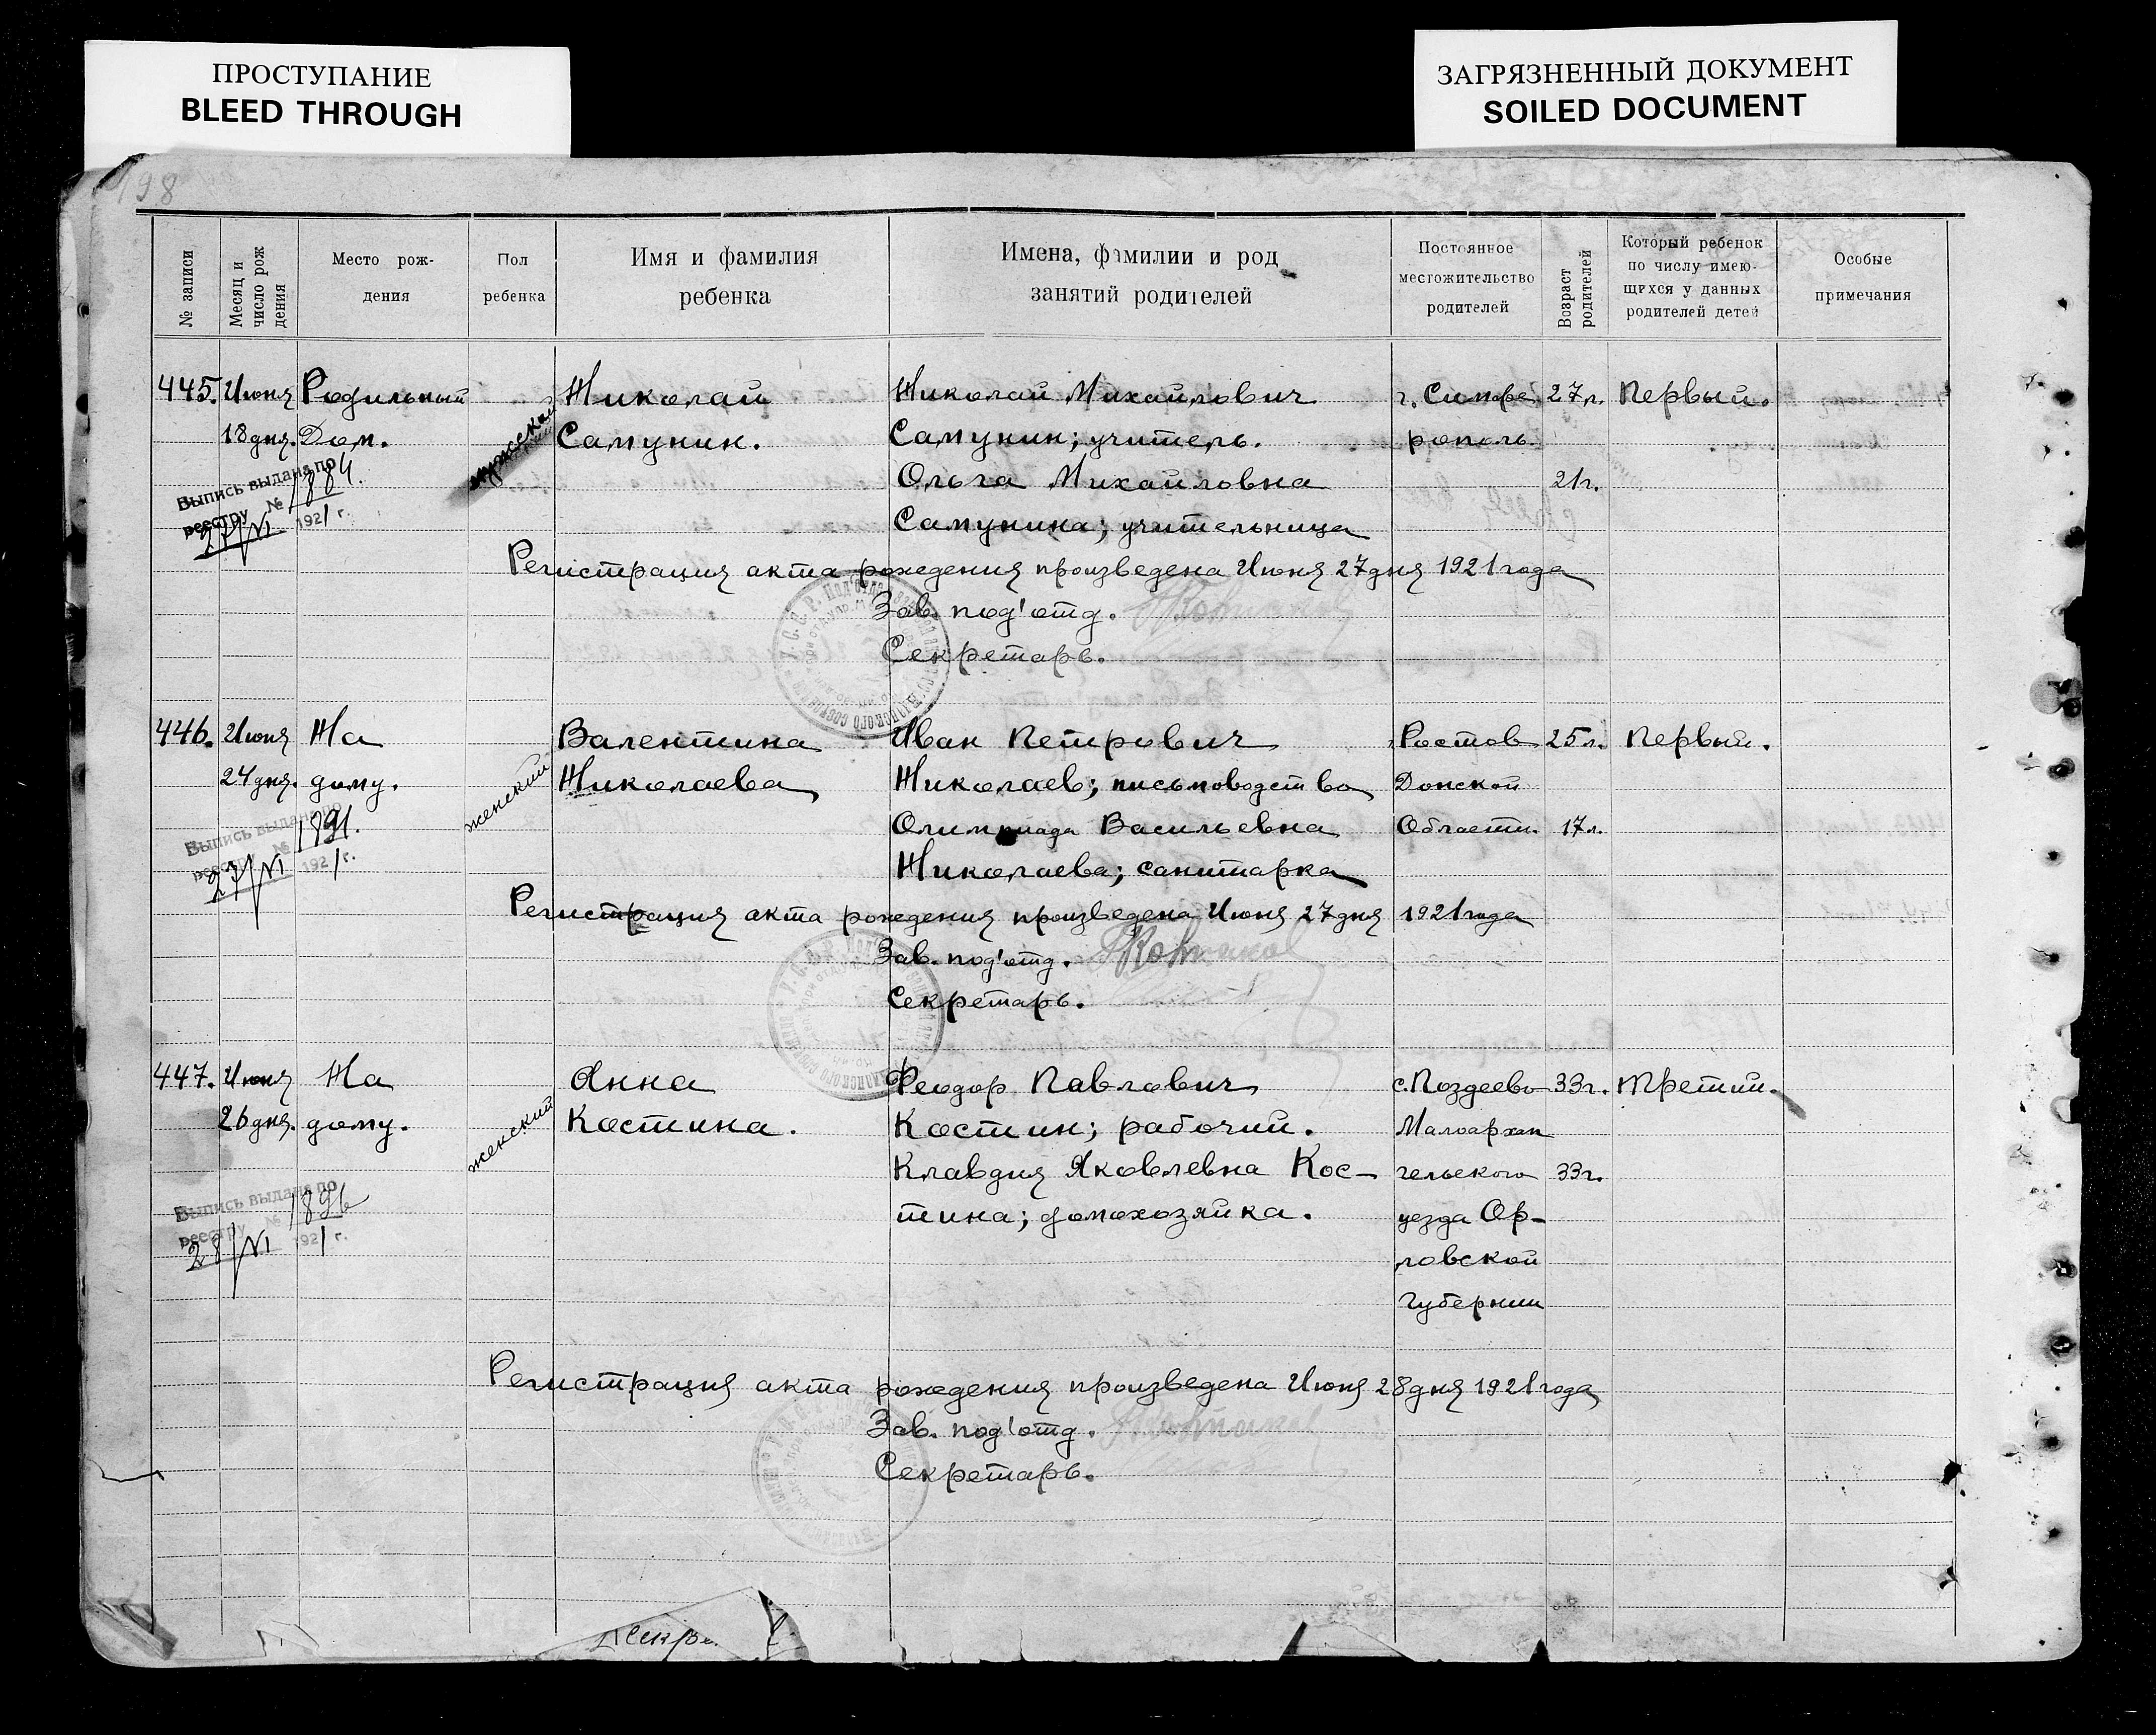 ПРОСТУПАНИЕ
BLEED THROUGH
ЗАГРЯЗНЕННЫЙ ДОКУМЕНТ
SOILED DOCUMENT
198
№ записи
Месяц и число рож дения
Место рож-
дения
Пол
ребенка
Имя и фамилия
ребенка
Имена, фамилии и род
занятий родителей
Постоянное
местожительство
родителей
Возраст родителей
Который ребенок
по числу имею-
щихся у данных
родителей детей
Особые
примечания
445. Июня Родильный мужской Николай Николай Михайлович г. Симфе 27 л. Первый.
18 дня. Дом. Самунин. Самунин; учитель. рополь.
Выпись выдана по
реестру № 1884.
27/VI 1921 г.
Ольга Михайловна 21 г.
Самунина; учительница
Регистрация акта рождения произведена Июня 27 дня 1921 года
Зав. под'отд.
Секретарь.
446. Июня На женский Валентина Иван Петрович Ростов 25 л. Первый.
24 дня. дому. Николаева Николаев; письмоводство Донской
Выпись выдана по
реестру № 1891.
27/VI 1921 г.
Олимпиада Васильевна Области. 17 л.
Николаева; санитарка
Регистрация акта рождения произведена Июня 27 дня 1921 года
Зав. под'отд.
Секретарь.
447. Июня На женский Анна Феодор Павлович с. Поздеево 33 г. Третий.
26 дня. дому. Костина. Костин; рабочий. Малоархан
Клавдия Яковлевна Кос- гельского 33 г.
Выпись выдана по
реестру № 1896
28/VI 1921 г.
тина; домохозяйка. уезда Ор-
ловской
Губернии
Регистрация акта рождения произведена Июня 28 дня 1921 года
Зав. под'отд.
Секретарь.